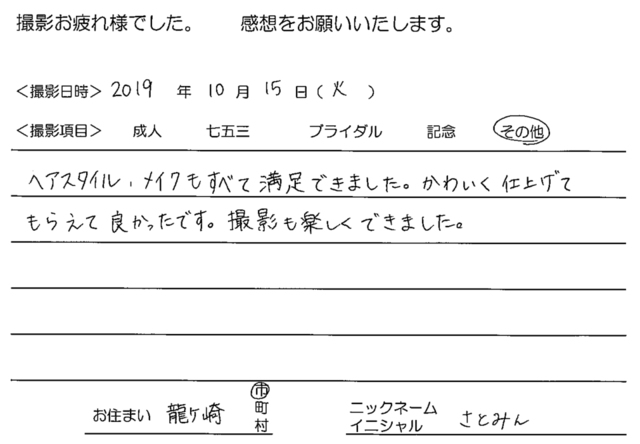 撮影お疲れ様でした。 感想をお願いいたします。
＜撮影日時＞ 2019 年 10 月 15 日（ 火 ）
＜撮影項目＞ 成人 七五三 ブライダル 記念 その他
ヘアスタイル、メイクもすべて満足できました。かわいく仕上げて
もらえて良かったです。撮影も楽しくできました。
お住まい 龍ケ崎 市町村 ニックネーム イニシャル さとみん